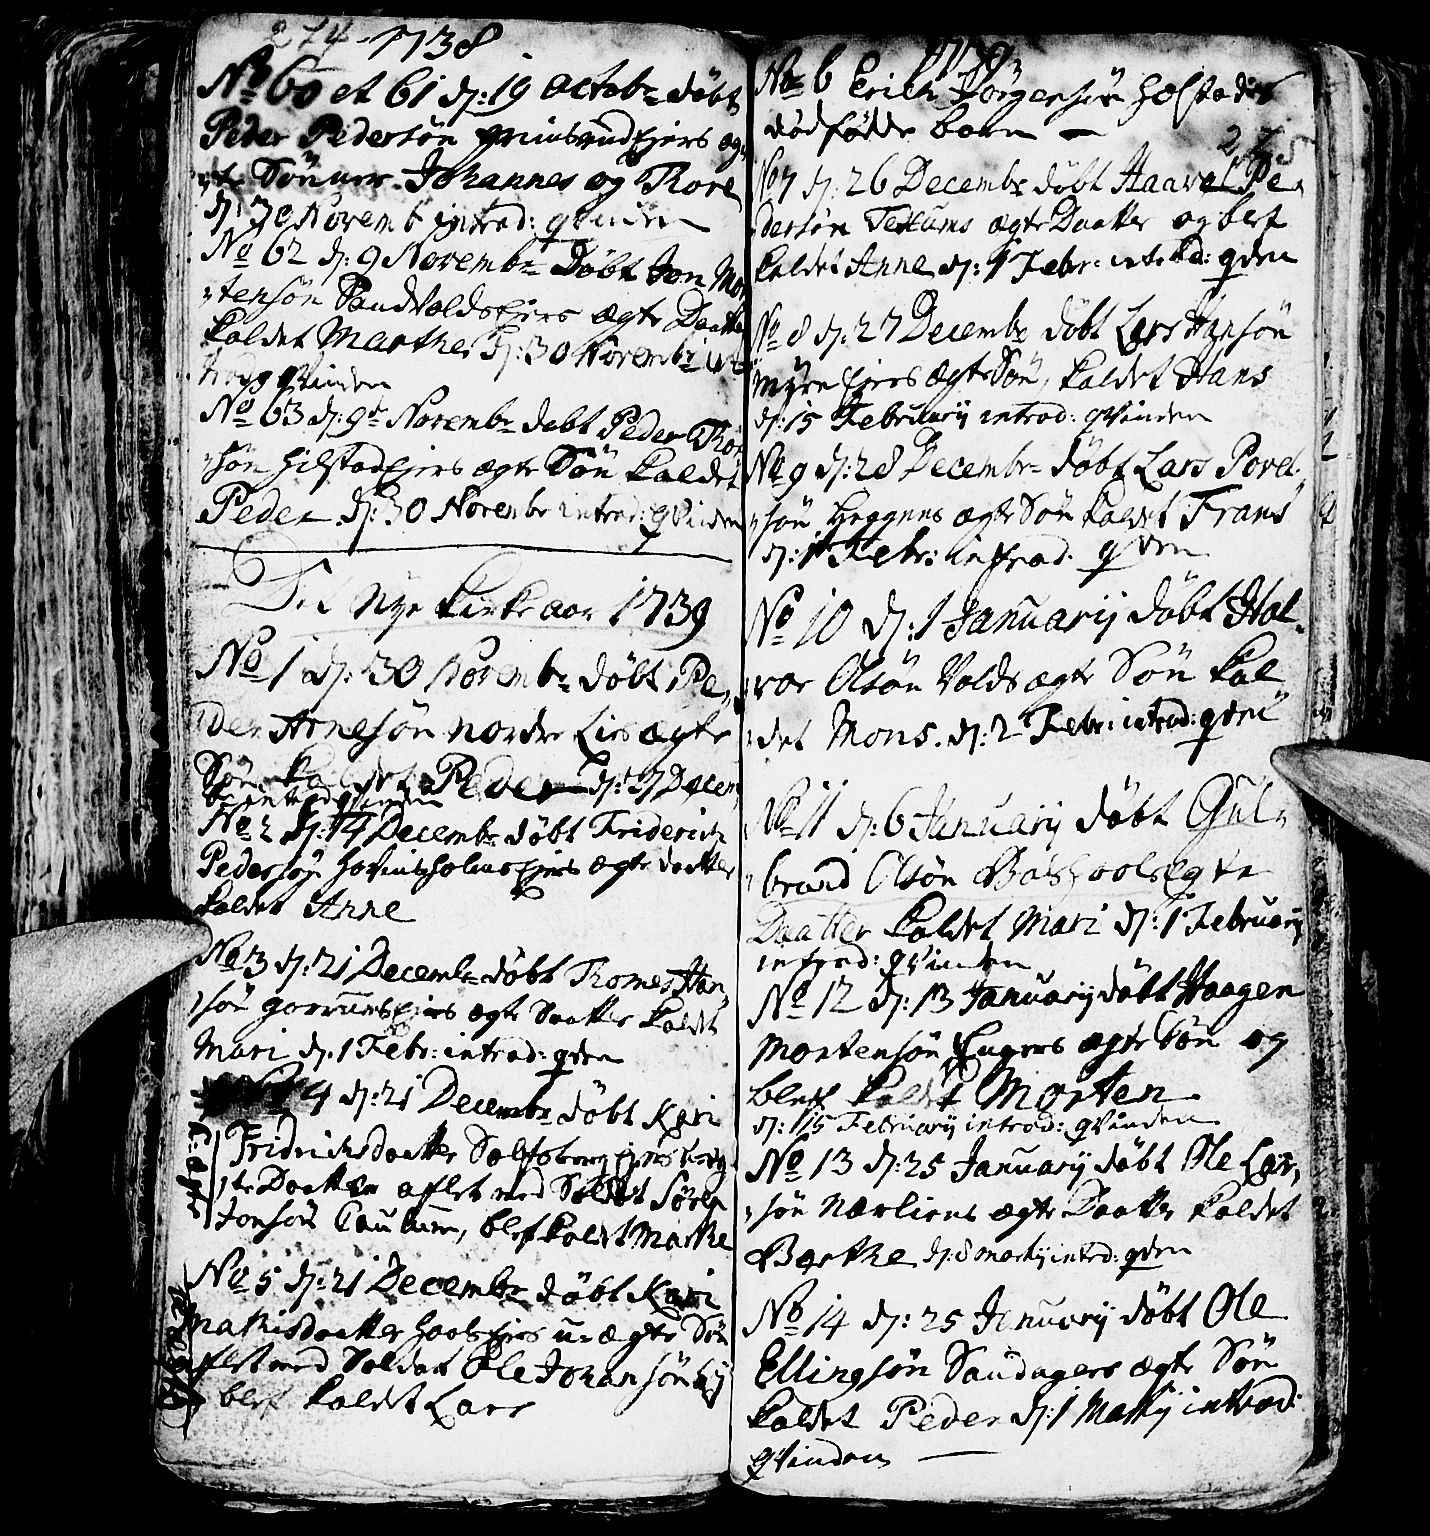 274 1738
No 60 et 61 d: 19 Octobr døbt
Peder Pedersøn Grimsrudejers æg,
,te Sønner Johannes og Thore
d: 30 Novemb introd: qvinden
No 62 d: 9 Novembr døbt Jon Mor
,tensøn Sandvoldsejers ægte Daatter
kaldet Marthe d: 30 Novembr int
trod qvinden
No 63 d: 9de Novembr døbt Peder Thor
,søn Hilstadejers ægte Søn kaldet
Peder d: 30 Novembr introd: qvinden
Det Nye Kirke aar 1739
No 1 d: 30 Novembr døbt Pe,
,der Arnesøn nordre Lies ægte
Søn kaldet Peder d: 27 Decem,
br introd qvinden
No 2 d: 14 Decembr døbt Friderich
Pedersøn Hovindsholmsejers ægte daatter
kaldet Anne
No 3 d: 21 Decembr døbt Thomes Han,
,søn ægte Daatter kaldt
Mari d. 1 Febr: introd: qvden
4 d: 21 Decembr døbt Kari
Fridrichsdaatter uæg,
,te Daatter aflet med Soldat Sören
Jonsøn blef kaldet Marthe
No 5 d: 21 Decembr døbt Kari
Mathisdaatter uægte Søn
aflet med Soldat Ole Johansøn
blef kaldet Lars
1739
No 6 Erich Jörgensøn Hølstadies
dødfødde barn —
275
No 7 d: 26 Decembr døbt Haavel Pe,
,dersøn Texums ægte Daatter og blef
kaldet Anne d: 1 Febr: introd: qvden
No 8 d: 27 Decembr døbt Lars Hansøn
Myrnejers ægte Søn, kaldet Hans
d: 15 Februarij introd: qvinden
No 9 d: 28 Decembr døbt Lars Povel,
,søn Heggnes ægte Søn kaldet Frans
d: 1 Febr: introd. qvden
No 10 d: 1 Januarij døbt Hal,
,vor Olsøn Volds ægte Søn kal
,det Mons. d: 2 Febr: introd: qvden
No 11 d: 6 Januarij døbt Gul,
,brand Olsøn ægte
Daatter kaldet Mari d: 1 Februarij
introd: qvinden
No 12 d: 13 Januarij døbt Haagen
Mortensøn Engers ægte Søn og
blef kaldet Morten
d: 15 Februarij introd: qvinden
No 13 d: 25 Januarij døbt Ole Lar,
,søn Nærliens ægte Daatter kaldet
Barthe d: 8 Martij introd: qvden
No 14 d: 25 Januarij døbt Ole
Ellingsøn Sandagers ægte Søn
kaldet Peder d: 1 Martij introd:
qvinden —